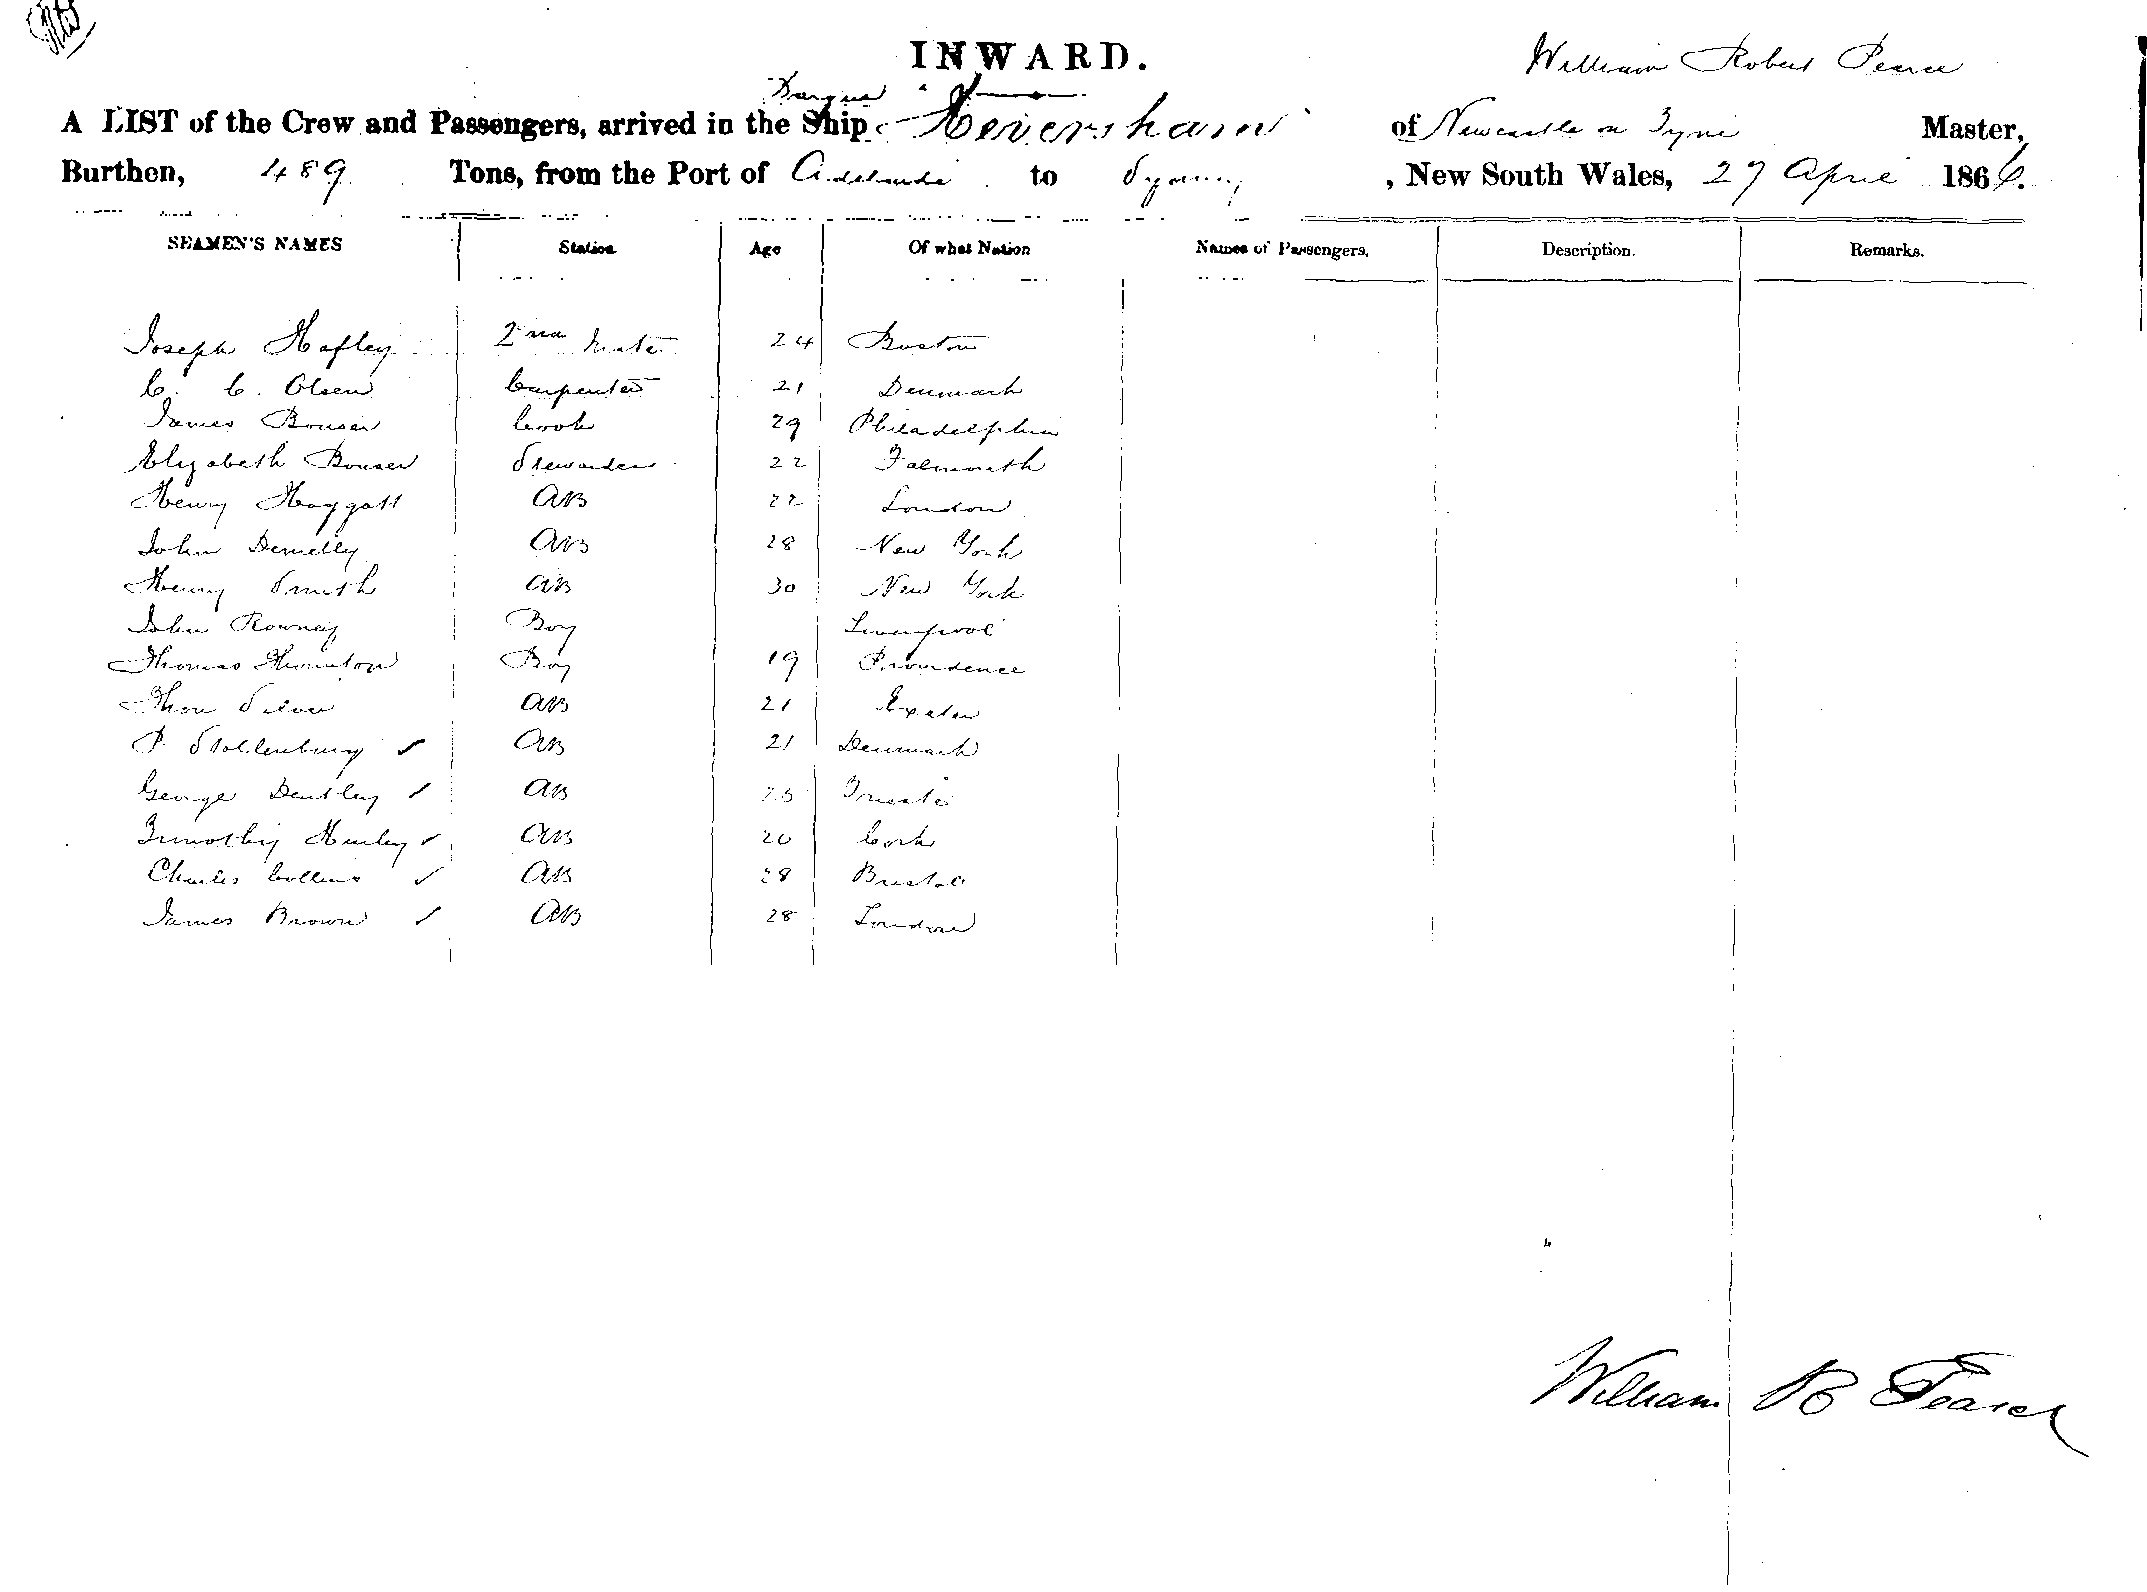 INWARD.
William Robert Pearce
Barque
A LIST of the Crew and Passengers, arrived in the Ship Heversham of Newcastle on Tyne Master,
Burthen, 489 Tons, from the Port of Adelaide to Sydney, New South Wales, 27 April 1866.
SEAMEN'S NAMES Station Age Of what Nation Names of Passengers. Description. Remarks.
Joseph Hafley 2nd Mate 24 Boston
C. C. Olsen Carpenter 21 Denmark
James Bouser Cook 29 Philadelphia
Elizabeth Bouser Stewardess 22 Falmouth
Henry Haggatt AB 22 London
John Dennelly AB 28 New York
Henry Smith AB 30 New York
John Rowney Boy Liverpool
Thomas Thornton Boy 19 Providence
Thos AB 21 Exeter
P. Stollenburg ✓ AB 21 Denmark
George Dentley ✓ AB Trieste
Timothy Hurley ✓ AB 20 Cork
Charles Collins ✓ AB 28 Bristol
James Brown ✓ AB 28 London
William R Pearce